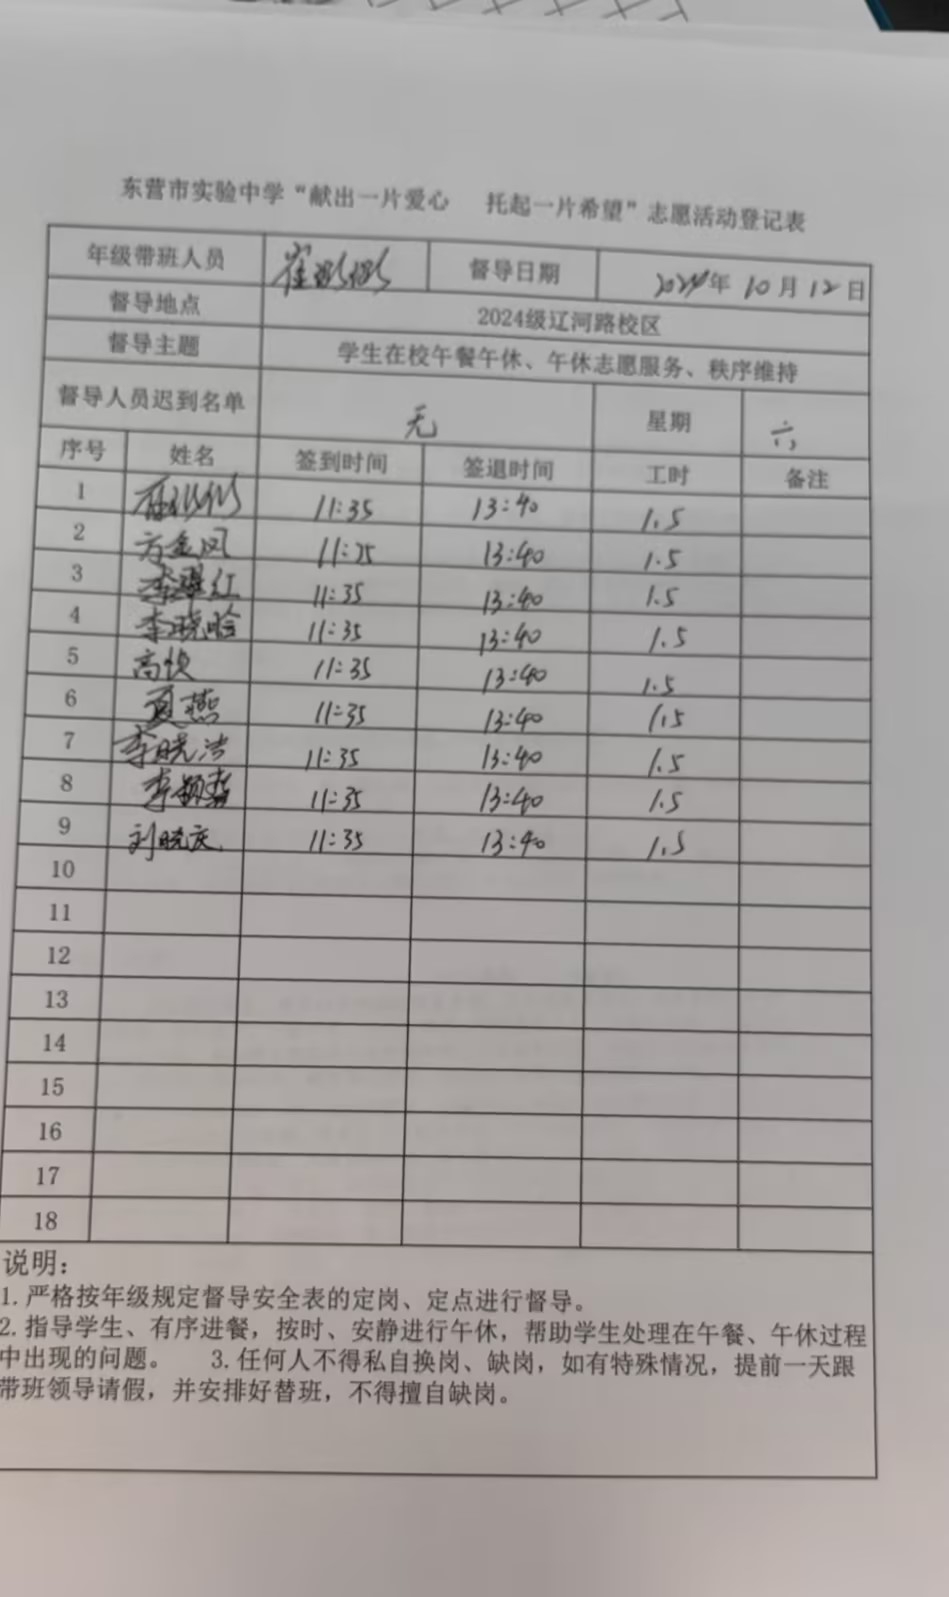 东营市实验中学“献出一片爱心 托起一片希望”志愿活动登记表
年级带班人员 崔 督导日期 2024年 10月 12日
督导地点 2024级辽河路校区
督导主题 学生在校午餐午休、午休志愿服务、秩序维持
督导人员迟到名单 无 星期 六
序号 姓名 签到时间 签退时间 工时 备注
1 11:35 13:40 1.5
2 方金凤 11:25 13:40 1.5
3 李翠红 11:35 13:40 1.5
4 李晓晗 11:35 13:40 1.5
5 高快 11:35 13:40 1.5
6 夏燕 11:35 13:40 1.5
7 李晓洁 11:35 13:40 1.5
8 李颖 11:35 13:40 1.5
9 刘晓庆 11:35 13:40 1.5
10
11
12
13
14
15
16
17
18
说明：
1.严格按年级规定督导安全表的定岗、定点进行督导。
2.指导学生、有序进餐，按时、安静进行午休，帮助学生处理在午餐、午休过程
中出现的问题。 3.任何人不得私自换岗、缺岗，如有特殊情况，提前一天跟
带班领导请假，并安排好替班，不得擅自缺岗。